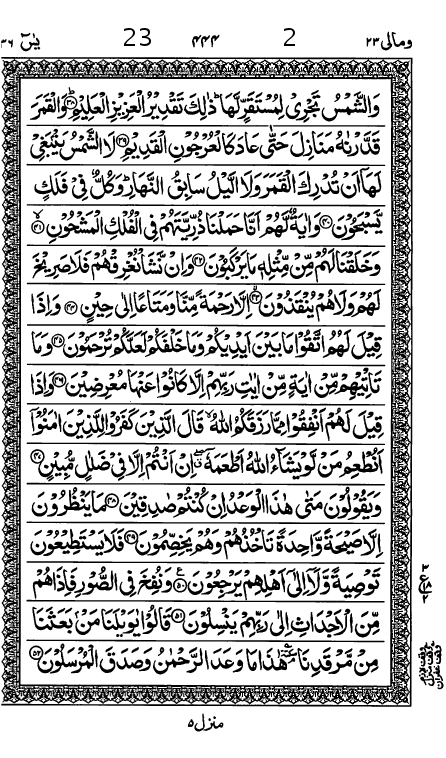 ومالی ۲۳ 2 ۴۴۴ 23 یٰسٓ ۳۶
وَالشَّمْسُ تَجْرِیْ لِمُسْتَقَرٍّ لَّهَا ؕ ذٰلِكَ تَقْدِیْرُ الْعَزِیْزِ الْعَلِیْمِ ﴿۳۸﴾ وَالْقَمَرَ
قَدَّرْنٰهُ مَنَازِلَ حَتّٰی عَادَ كَالْعُرْجُوْنِ الْقَدِیْمِ ﴿۳۹﴾ لَا الشَّمْسُ یَنْۢبَغِیْ
لَهَاۤ اَنْ تُدْرِكَ الْقَمَرَ وَلَا الَّیْلُ سَابِقُ النَّهَارِ ؕ وَكُلٌّ فِیْ فَلَكٍ
یَّسْبَحُوْنَ ﴿۴۰﴾ وَاٰیَةٌ لَّهُمْ اَنَّا حَمَلْنَا ذُرِّیَّتَهُمْ فِی الْفُلْكِ الْمَشْحُوْنِ ﴿۴۱﴾
وَخَلَقْنَا لَهُمْ مِّنْ مِّثْلِهٖ مَا یَرْكَبُوْنَ ﴿۴۲﴾ وَاِنْ نَّشَاْ نُغْرِقْهُمْ فَلَا صَرِیْخَ
لَهُمْ وَلَا هُمْ یُنْقَذُوْنَ ﴿۴۳﴾ اِلَّا رَحْمَةً مِّنَّا وَمَتَاعًا اِلٰی حِیْنٍ ﴿۴۴﴾ وَاِذَا
قِیْلَ لَهُمُ اتَّقُوْا مَا بَیْنَ اَیْدِیْكُمْ وَمَا خَلْفَكُمْ لَعَلَّكُمْ تُرْحَمُوْنَ ﴿۴۵﴾ وَمَا
تَاْتِیْهِمْ مِّنْ اٰیَةٍ مِّنْ اٰیٰتِ رَبِّهِمْ اِلَّا كَانُوْا عَنْهَا مُعْرِضِیْنَ ﴿۴۶﴾ وَاِذَا
قِیْلَ لَهُمْ اَنْفِقُوْا مِمَّا رَزَقَكُمُ اللّٰهُ ۙ قَالَ الَّذِیْنَ كَفَرُوْا لِلَّذِیْنَ اٰمَنُوْۤا
اَنُطْعِمُ مَنْ لَّوْ یَشَآءُ اللّٰهُ اَطْعَمَهٗۤ ۖ اِنْ اَنْتُمْ اِلَّا فِیْ ضَلٰلٍ مُّبِیْنٍ ﴿۴۷﴾
وَیَقُوْلُوْنَ مَتٰی هٰذَا الْوَعْدُ اِنْ كُنْتُمْ صٰدِقِیْنَ ﴿۴۸﴾ مَا یَنْظُرُوْنَ
اِلَّا صَیْحَةً وَّاحِدَةً تَاْخُذُهُمْ وَهُمْ یَخِصِّمُوْنَ ﴿۴۹﴾ فَلَا یَسْتَطِیْعُوْنَ
تَوْصِیَةً وَّلَاۤ اِلٰۤی اَهْلِهِمْ یَرْجِعُوْنَ ﴿۵۰﴾ وَنُفِخَ فِی الصُّوْرِ فَاِذَا هُمْ
مِّنَ الْاَجْدَاثِ اِلٰی رَبِّهِمْ یَنْسِلُوْنَ ﴿۵۱﴾ قَالُوْا یٰوَیْلَنَا مَنْۢ بَعَثَنَا
مِنْ مَّرْقَدِنَا ؄ هٰذَا مَا وَعَدَ الرَّحْمٰنُ وَصَدَقَ الْمُرْسَلُوْنَ ﴿۵۲﴾
منزل ۵